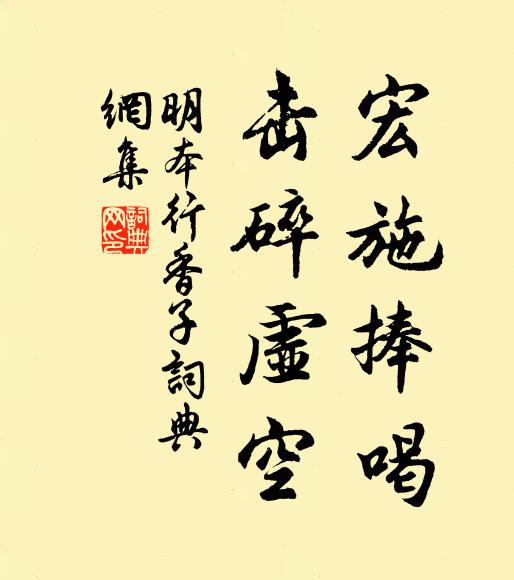 宏施捧喝
击碎虚空
明本行香子詞典
網集
詞典
网印